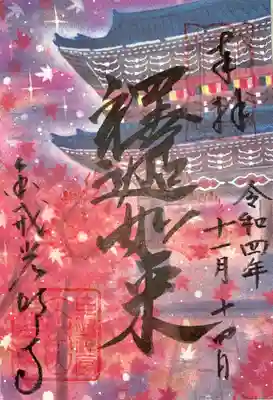 奉拝
令和四年
十一月十四日
釋迦如来
東戒光明寺